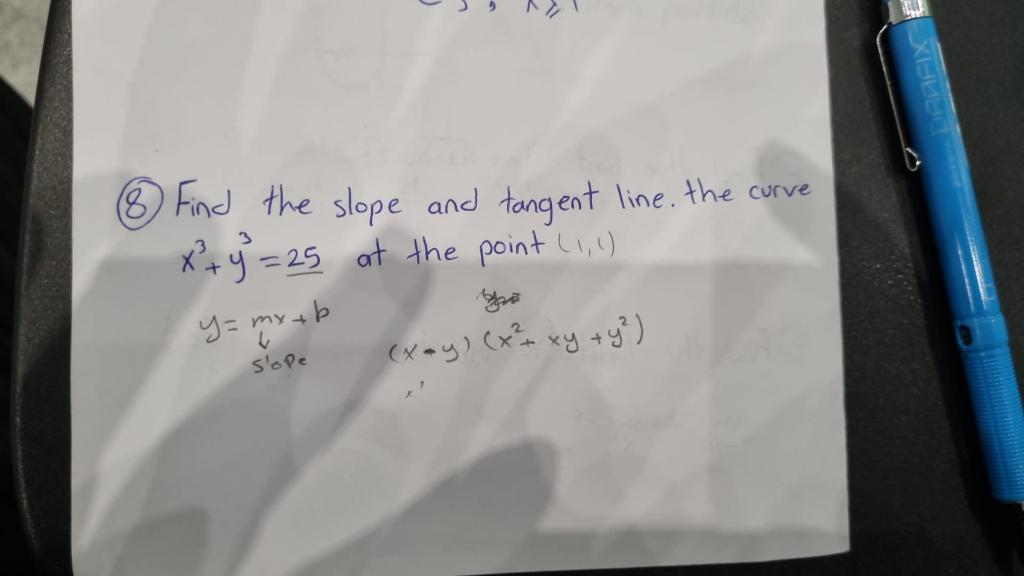 x ≥ 1
⑧ Find the slope and tangent line. the curve
x³ + y³ = 25 at the point (1,1)
y = mx + b
↓
slope
(x - y) (x² + xy + y²)
x³